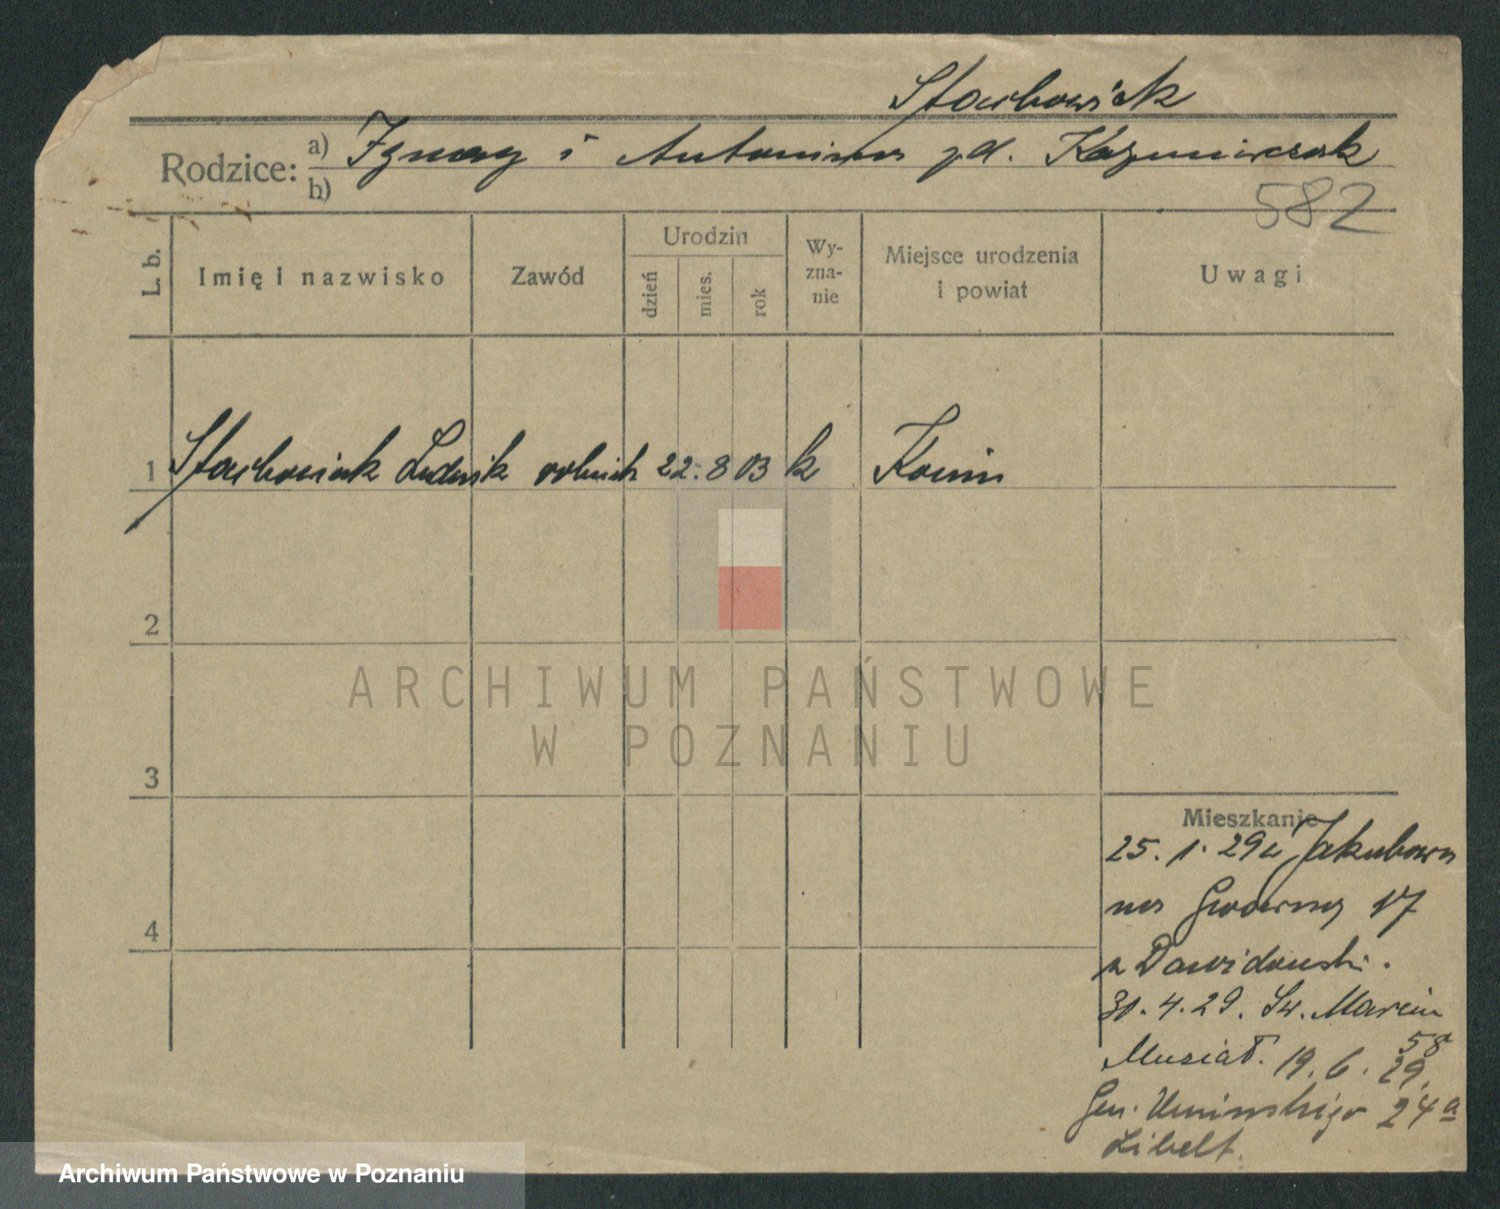 Stachowiak
Rodzice: a) b) Ignacy i Antonina z d. Kazmierczak
582
L. b.
Imię i nazwisko
Zawód
Urodzin
dzień
mies.
rok
Wy-
zna-
nie
Miejsce urodzenia
i powiat
Uwagi
1 Stachowiak Ludwik rolnik 22. 8 03 k Konin
2
ARCHIWUM PAŃSTWOWE
W POZNANIU
3
Mieszkanie
25. 1. 29 z Jakubowa
na Gwarna 17
z Dawidowski.
4
30. 4. 29. Św. Marcin
58
Musiał. 19. 6. 29.
Gen. Umińskiego 24a
Libelt.
Archiwum Państwowe w Poznaniu